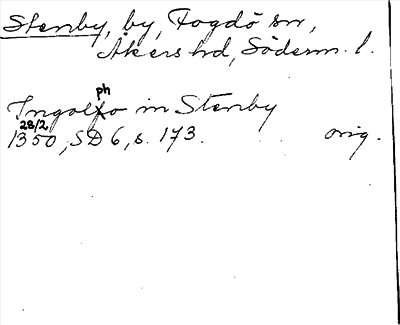 Stenby, by, Fogdö sn,
Åkers hd, Söderm. l.
Ingolpho in Stenby
28/2 1350, SD 6, s. 173. orig.